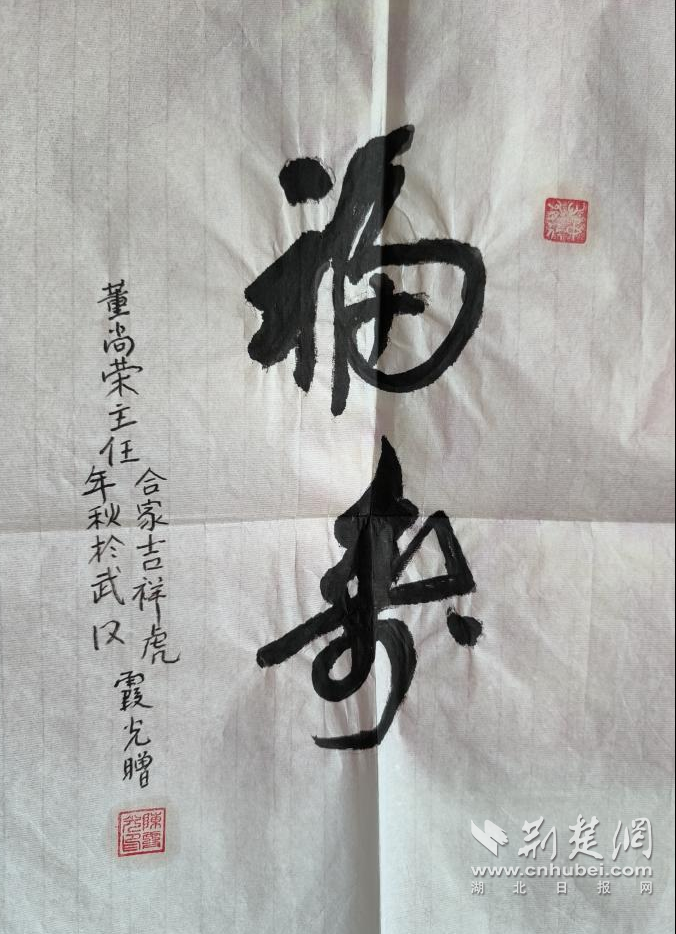 福寿
董尚荣主任
合家吉祥虎
年秋於武汉
霞光赠
陈霞
荆楚网
www.cnhubei.com
湖北日报网